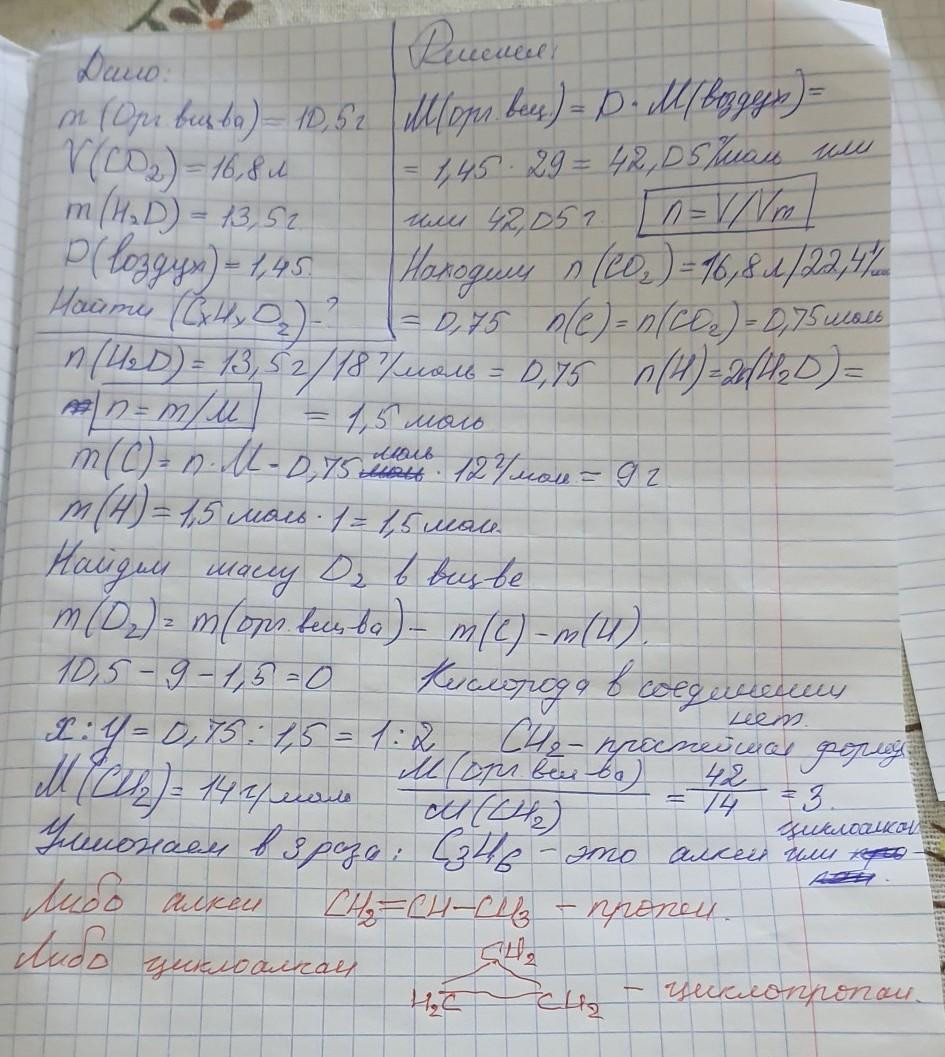 Дано:
m(Орг. вещ-ва) = 10,5 г
V(CO2) = 16,8 л
m(H2O) = 13,5 г
D(воздух) = 1,45
Найти (CxHyO2) - ?
Решение:
M(орг. вещ.) = D · M(воздух) =
= 1,45 · 29 = 42,05 г/моль или
или 42,05 г n = V/Vm
Находим n(CO2) = 16,8 л/22,4 л/моль
= 0,75 n(C) = n(CO2) = 0,75 моль
n(H2O) = 13,5 г/18 г/моль = 0,75 n(H) = 2n(H2O) =
n = m/M = 1,5 моль
m(C) = n · M - 0,75 моль · 12 г/моль = 9 г
m(H) = 1,5 моль · 1 = 1,5 моль
Найдем массу O2 в вещ-ве
m(O2) = m(орг. вещ-ва) - m(C) - m(H).
10,5 - 9 - 1,5 = 0 Кислорода в соединении
нет.
x : y = 0,75 : 1,5 = 1 : 2 CH2 - простейшая формула
M(CH2) = 14 г/моль M(орг. вещ-ва)/M(CH2) = 42/14 = 3.
Умножаем в 3 раза: C3H6 - это алкен или циклоалкан
Либо алкен CH2=CH-CH3 - пропен.
Либо циклоалкан
CH2
H2C CH2 - циклопропан.